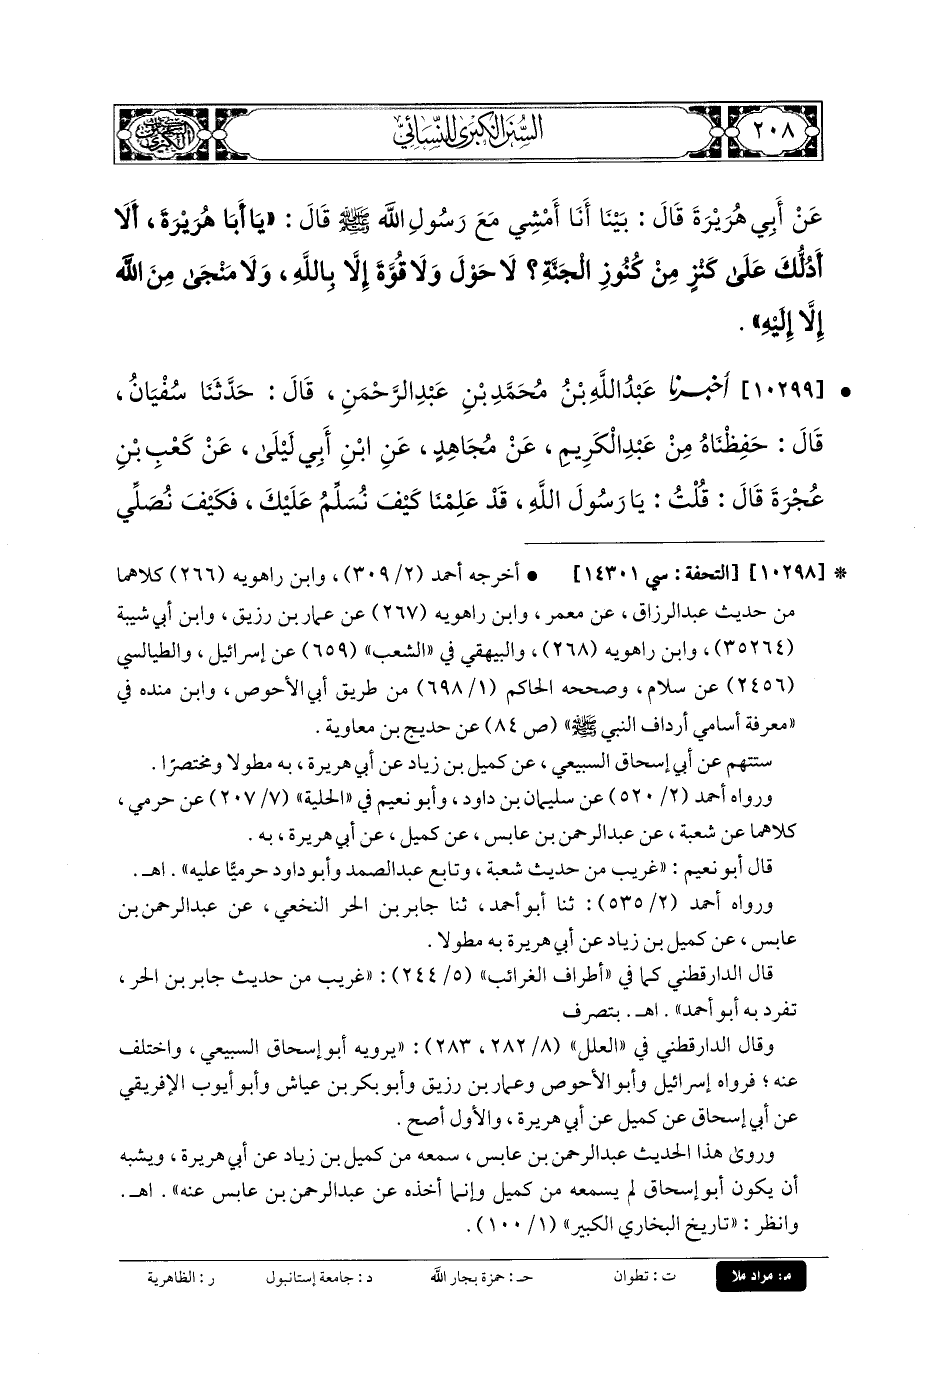 ٢٠٨
السُّنَنُ الكِبْرَىٰ لِلنِّسَائِيِّ
عَنْ أَبِي هُرَيْرَةَ قَالَ : بَيْنَا أَنَا أَمْشِي مَعَ رَسُولِ اللَّه ﷺ قَالَ : «يَا أَبَا هُرَيْرَةَ ، أَلَا
أَدُلُّكَ عَلَىٰ كَنْزٍ مِنْ كُنُوزِ الْجَنَّةِ؟ لَا حَوْلَ وَلَا قُوَّةَ إِلَّا بِاللَّهِ ، وَلَا مَنْجَىٰ مِنَ اللَّه
إِلَّا إِلَيْهِ» .
• [١٠٢٩٩] أَخْبَرَنا عَبْدُاللَّهِ بْنُ مُحَمَّدِ بْنِ عَبْدِالرَّحْمَنِ ، قَالَ : حَدَّثَنَا سُفْيَانُ ،
قَالَ : حَفِظْنَاهُ مِنْ عَبْدِالْكَرِيمِ ، عَنْ مُجَاهِدٍ ، عَنِ ابْنِ أَبِي لَيْلَىٰ ، عَنْ كَعْبِ بْنِ
عُجْرَةَ قَالَ : قُلْتُ : يَا رَسُولَ اللَّهِ ، قَدْ عَلِمْنَا كَيْفَ نُسَلِّمُ عَلَيْكَ ، فَكَيْفَ نُصَلِّي
* [١٠٢٩٨] [التحفة : سي ١٤٣٠١] • أخرجه أحمد (٢/ ٣٠٩) ، وابن راهويه (٢٦٦) كلاهما
من حديث عبدالرزاق ، عن معمر ، وابن راهويه (٢٦٧) عن عمار بن رزيق ، وابن أبي شيبة
(٣٥٢٦٤) ، وابن راهويه (٢٦٨) ، والبيهقي في «الشعب» (٦٥٩) عن إسرائيل ، والطيالسي
(٢٤٥٦) عن سلام ، وصححه الحاكم (١/ ٦٩٨) من طريق أبي الأحوص ، وابن منده في
«معرفة أسامي أرداف النبي ﷺ» (ص ٨٤) عن حديج بن معاوية .
ستتهم عن أبي إسحاق السبيعي ، عن كميل بن زياد عن أبي هريرة ، به مطولا ومختصرًا .
ورواه أحمد (٢/ ٥٢٠) عن سليمان بن داود ، وأبو نعيم في «الحلية» (٧/ ٢٠٧) عن حرمي ،
كلاهما عن شعبة ، عن عبدالرحمن بن عابس ، عن كميل ، عن أبي هريرة ، به .
قال أبو نعيم : «غريب من حديث شعبة ، وتابع عبدالصمد وأبو داود حرميًّا عليه» . اهـ .
ورواه أحمد (٢/ ٥٣٥) : ثنا أبو أحمد ، ثنا جابر بن الحر النخعي ، عن عبدالرحمن بن
عابس ، عن كميل بن زياد عن أبي هريرة به مطولا .
قال الدارقطني كما في «أطراف الغرائب» (٥/ ٢٤٤) : «غريب من حديث جابر بن الحر ،
تفرد به أبو أحمد» . اهـ . بتصرف
وقال الدارقطني في «العلل» (٨/ ٢٨٢ ، ٢٨٣) : «يرويه أبو إسحاق السبيعي ، واختلف
عنه ؛ فرواه إسرائيل وأبو الأحوص وعمار بن رزيق وأبو بكر بن عياش وأبو أيوب الإفريقي
عن أبي إسحاق عن كميل عن أبي هريرة ، والأول أصح .
وروىٰ هذا الحديث عبدالرحمن بن عابس ، سمعه من كميل بن زياد عن أبي هريرة ، ويشبه
أن يكون أبو إسحاق لم يسمعه من كميل وإنما أخذه عن عبدالرحمن بن عابس عنه» . اهـ .
وانظر : «تاريخ البخاري الكبير» (١/ ١٠٠) .
م: مراد ملا ت : تطوان حـ : حمزة بجار الله د : جامعة إستانبول ر : الظاهرية